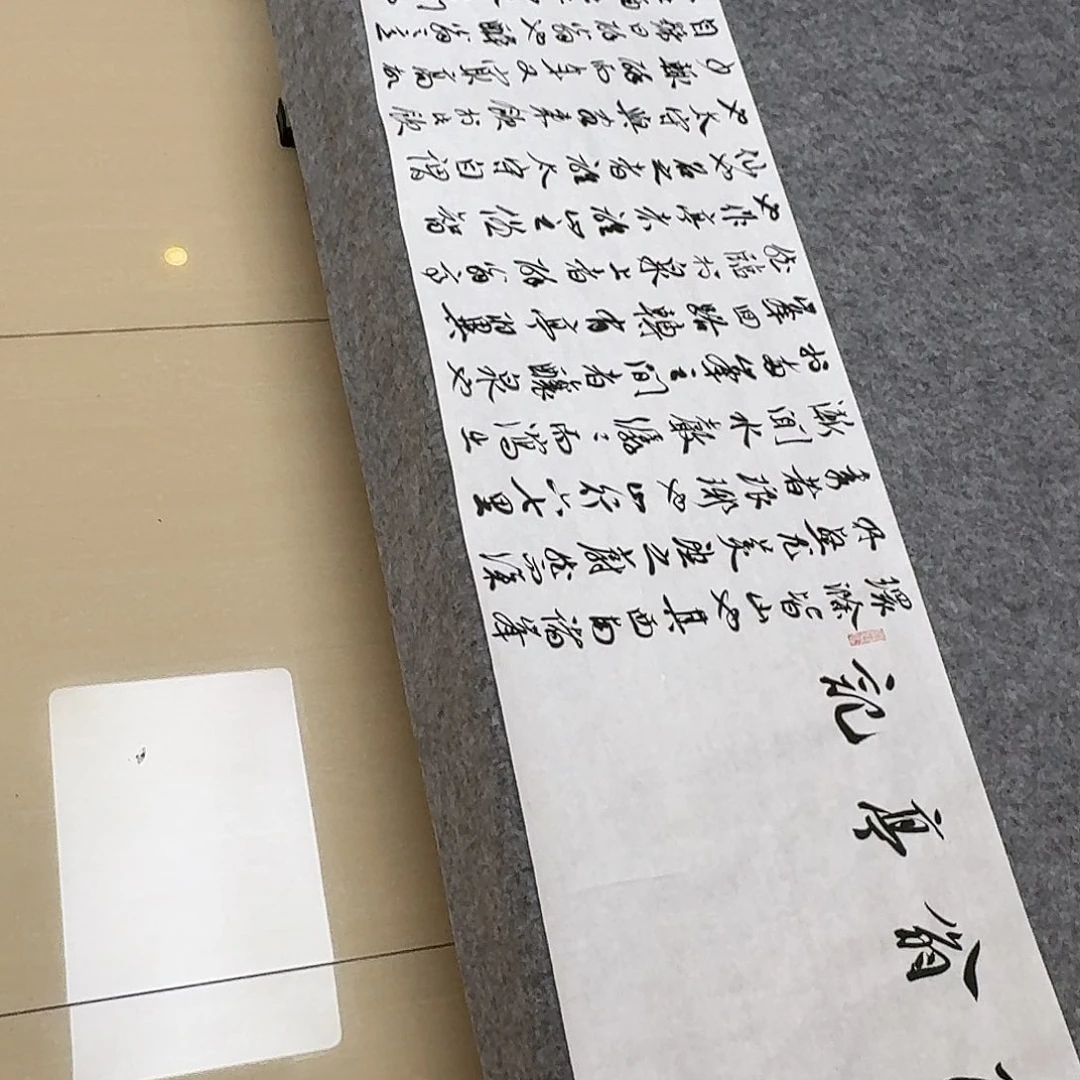 翁亭記
環滁皆山也其西南諸峰
林壑尤美望之蔚然而深
秀者琅琊也山行六七里
漸聞水聲潺々而瀉出
於兩峰之間者釀泉也
峯回路轉有亭翼
然臨於泉上者醉翁亭
也作亭者誰山之僧智
仙也名之者誰太守自謂
也太守與客來飲於此飲
少輒醉而年又最高故
自號曰醉翁也醉翁之意